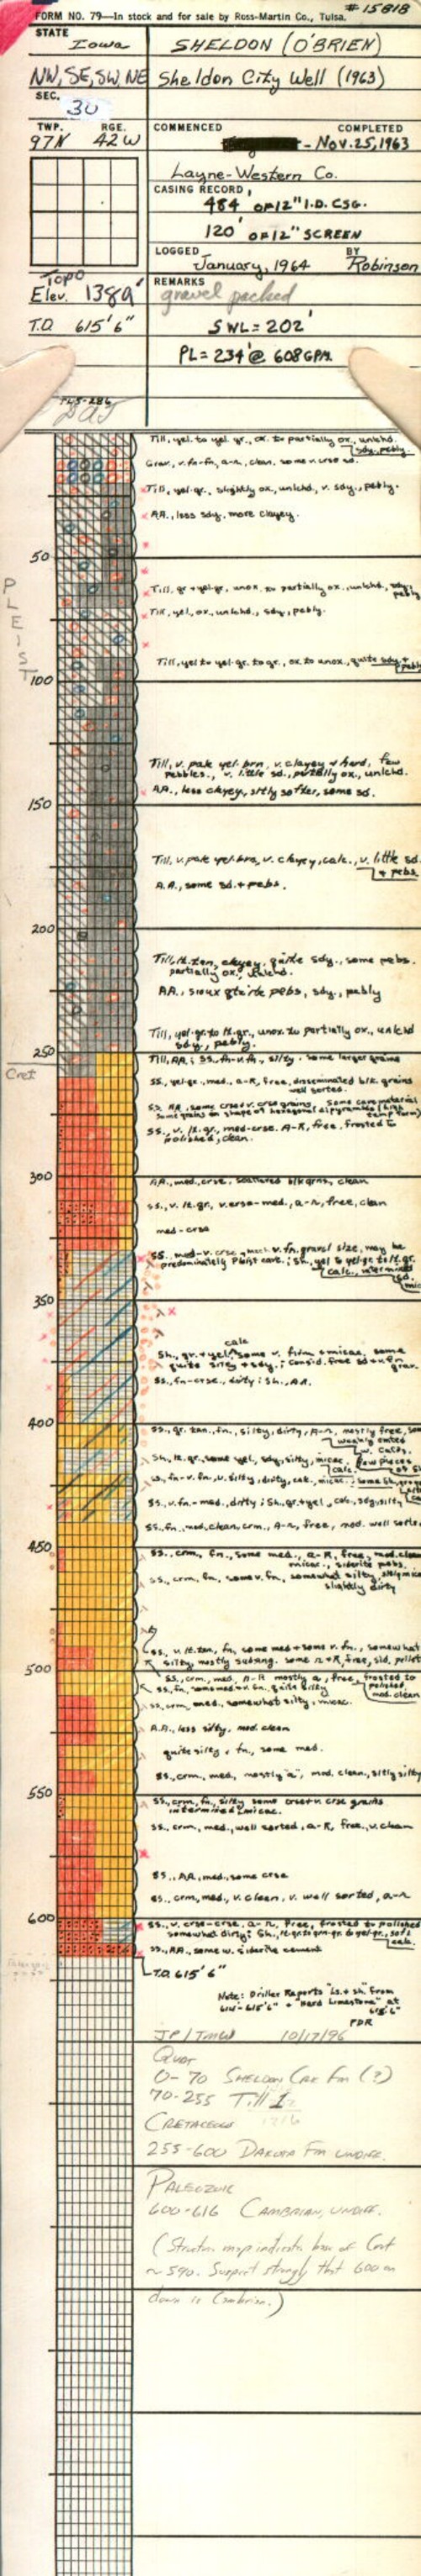 #15818
FORM NO. 79—In stock and for sale by Ross-Martin Co., Tulsa.
STATE
Iowa
SHELDON (O'BRIEN)
NW, SE, SW, NE
Sheldon City Well (1963)
SEC.
30
TWP.
RGE.
97N
42W
COMMENCED
COMPLETED
- Nov. 25, 1963
Layne-Western Co.
CASING RECORD
484' OF 12" I.D. CSG.
120' OF 12" SCREEN
LOGGED
BY
January, 1964
Robinson
Topo
Elev. 1389'
REMARKS
gravel packed
T.D. 615'6"
SWL = 202'
PL = 234' @ 608 GPM.
Till, yel. to yel. gr., ox. to partially ox., unlchd.
sdy., pebly.
Grav., v. fn-fn, a-r, clean, some v. crse sd.
Till, yel-gr., slightly ox., unlchd., v. sdy., pebly.
AA., less sdy., more clayey.
50
Till, gr + yel-gr., unox. to partially ox., unlchd., sdy., pebly
Till, yel., ox., unlchd., sdy., pebly.
PLEIST
Till, yel to yel-gr. to gr., ox to unox., quite sdy +
100
Till, v. pale yel-brn, v. clayey + hard, few
pebbles., v. little sd., partially ox., unlchd.
AA., less clayey, sltly softer, some sd.
150
Till, v. pale yel-brn, v. clayey, calc., v. little sd.
+ pebs.
A.A., some sd. + pebs.
200
Till, lt. tan, clayey, quite sdy., some pebs.
partially ox., unlchd.
AA., sioux qtzite pebs, sdy., pebly
Till, yel-gr. to lt. gr., unox. to partially ox., unlchd
sdy., pebly.
250
Till, AA; ss., fn-v. fn., silty. some larger grains
Cret
ss., yel-gr., med., a-R, free, disseminated blk. grains
well sorted.
ss. AA, some crse + v. crse grains. Some core material
Some grains on shape of hexagonal dipyramids (high temp form)
SS., v. lt. gr., med-crse. A-R, free, frosted to
polished, clean.
300
AA., med., crse, scattered blk grns, clean
ss., v. lt. gr., v. crse-med., a-r, free, clean
med-crse
SS. med-v. crse, much v. fn. gravel size, may be
predominately Pleist cave.; Sh., yel to yel-gr to lt. gr.
350
calc
Sh., gr. + yel, some v. firm, + micac., some
quite silty + sdy.; consid. free sd + v. fn
grav.
ss., fn-crse., dirty; Sh., AA.
400
ss., gr. tan., fn., silty, dirty, A-R, mostly free, some
weakly cmted
w. Calcs.
Sh., lt. gr., some yel, sdy, silty, micac. few pieces
calc.
ss., fn-v. fn., v. silty, dirty, calc., micac.; some Sh.,
ss., v. fn-med., dirty; Sh., gr. + yel, calc, sdy, silty
ss., fn, med, clean, crm., A-R, free, mod. well sorted
450
ss., crm, fn., some med., a-R, free, mod. clean
micac., siderite pebs.
ss., crm, fn, some v. fn., somewhat silty, sltly mica
slightly dirty
ss., v. lt. tan, fn, some med + some v. fn., somewhat
silty, mostly subang. some r + R, free, sid. pellet
500
ss., crm, med, A-R mostly a, free, frosted to
polished, mod. clean
ss., fn, some med + v. fn., quite silty
ss., crm, med., somewhat silty, micac.
A.A., less silty, mod. clean
quite silty + fn, some med.
ss., crm., med., mostly "a", mod. clean, sltly silty
550
ss., crm, fn, silty some crse + v crse grains
intermixed, micac.
ss., crm, med., well sorted, a-R, free, v. clean
ss., AA, med., some crse
ss., crm, med., v. clean, v. well sorted, a-r
600
ss., v. crse-crse, a-r, free, frosted to polished
somewhat dirty; Sh., lt-gr. to grn-gr. to yel-gr., soft
calc.
ss., AA., some w. siderite cement
T.D. 615'6"
Note: Driller Reports "Ls. + sh." from
614-615'6" + "Hard Limestone" at
615'6"
PDR
JP/TMW 10/17/96
Quat
0-70 Sheldon Crk Fm (?)
70-255 Till 1
Cretaceous
255-600 Dakota Fm undiff.
Paleozoic
600-616 Cambrian, undiff.
(Structure map indicates base of Cret
~ 590. Suspect strongly that 600 on
down is Cambrian.)